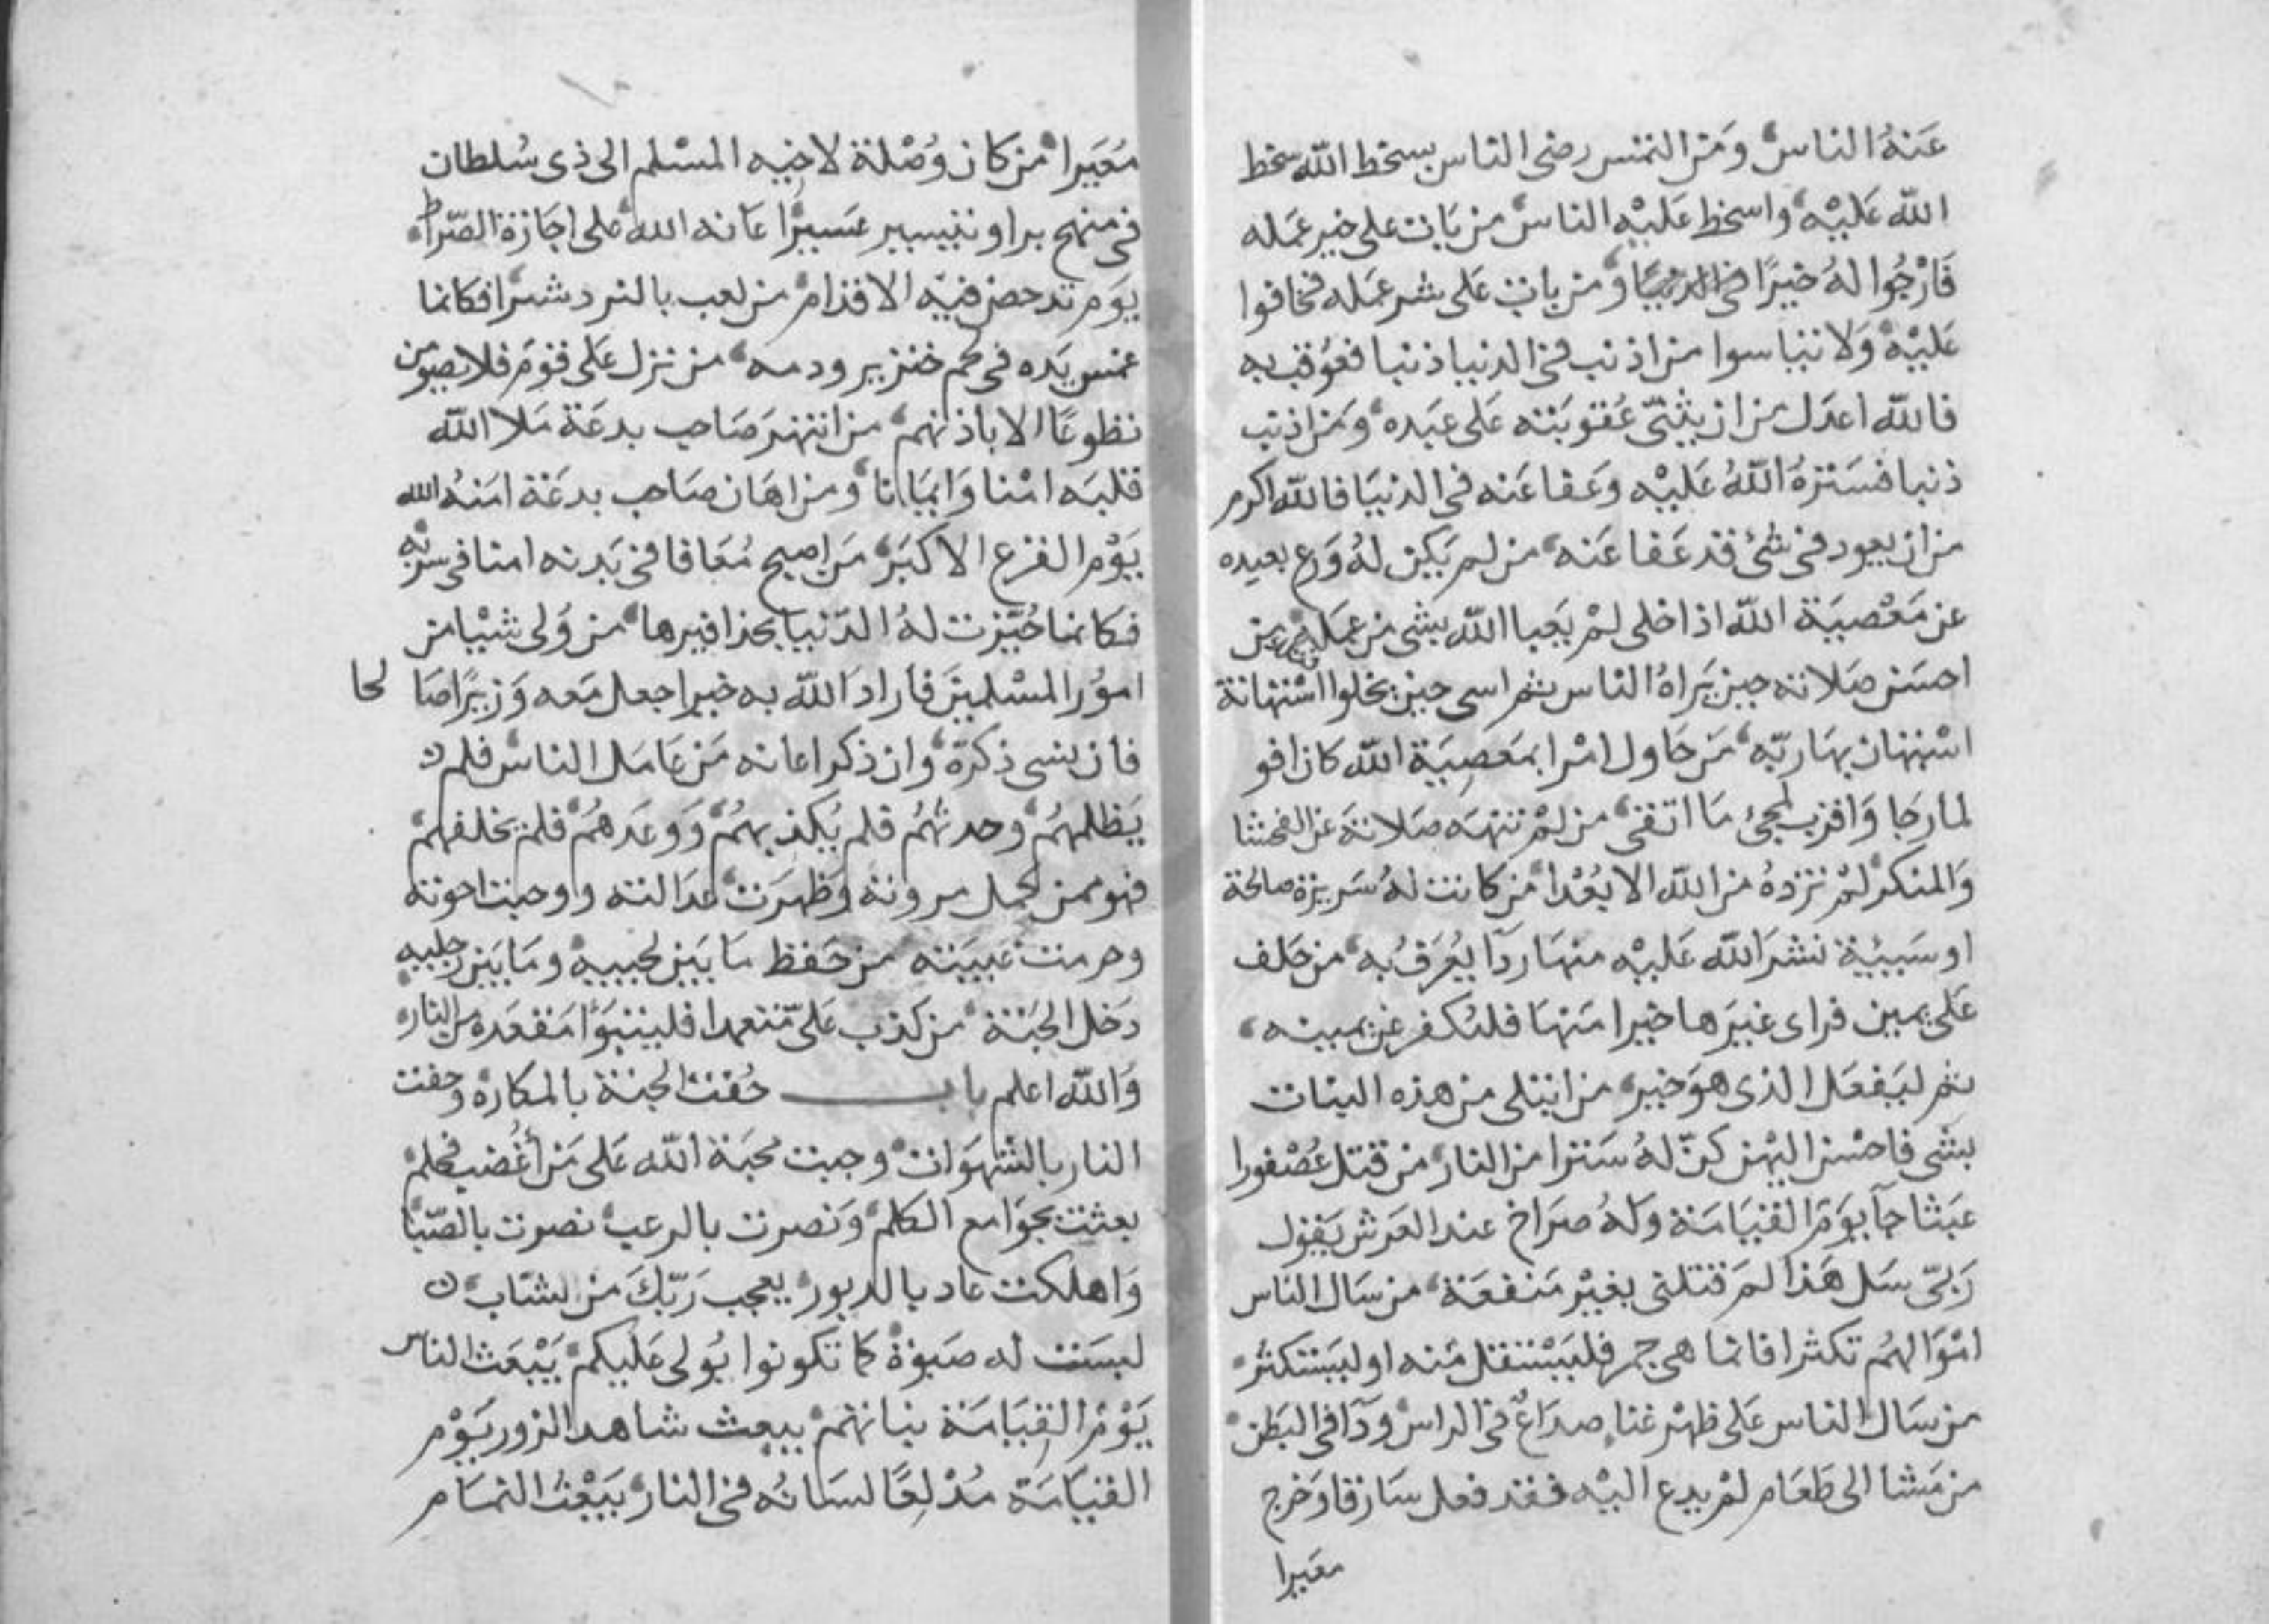 عَنهُ الناس ومَن التمس رضى الناس بسخط الله سخط
الله عَليْه واسخط عَليْه الناس من بات على خير عَمَله
فَارْجُوا لهُ خيرًا ومن بات عَلى شر عمَله فخافوا
عَليْه وَلا تياسوا من اذنب فى الدنيا ذنبا فعُوقب به
فالله اعدَل من ان يثنّى عُقوبَته عَلى عبَده ومَن اذنب
ذنبا فسَترهُ اللهُ عَليْه وَعَفا عَنه فى الدنيَا فالله اكرم
من ان يعود فى شئ قد عَفا عَنه من لم يَكن لهُ وَرع يعيده
عن مَعْصيَة الله اذا خلى لمْ يَعبا الله بشى من عمَله من
احسَن صَلاته حين يَراهُ الناس ثم اسى حين يخلوا اسْتهانة
اسْتهان بهَا ربّه مَن حَاول امْرا بمَعصِيَة الله كان افو
لما رجَا وَاقرب لمجئ مَا اتقى من لمْ تنهَه صَلاتهَ عن الفحشا
وَالمنكر لمْ تزدهُ من الله الا بُعْدا من كانت لهُ سَريرة صالحة
او سَيئة نشرَ الله عَليْه منهَا ردَآ يُعرَفُ به من حَلف
عَلى يمين فراى غيَرها خيرا مَنهَا فلتكفر عن يمينه
ثم ليَفعَل الذى هوَ خير من ابتلى من هذه البنات
بشى فاحسْن اليهْن كنّ لهُ سَترا من النار من قتل عُصْفورا
عَبثا جآ يوَم القيَامَة وَلهُ صرَاخ عند العَرش يَقول
رَبّى سَل هَذا لمَ قتلنى بغيْر مَنفعَة من سَال الناس
امْوَالهُم تكثرا فانما هى جمر فليَسْتقل مَنه او ليَستكثر
من سَال الناس عَلى ظهْر غنا صدَاعٌ فى الراس ودَآ فى البَطن
من مَشا الى طعَام لمْ يدع اليْه فقد فعل سَارقا وَخرج
مغيرا
مُغيَرا من كان وُصْلة لاخِيه المسْلم الى ذى سُلطان
فى منهج بر او تيسير عسَيرًا عَانه الله على اجَازة الصّراط
يوَم تدحض فيْه الاقدام من لعب بالنرد شرًا فكانما
غمس يَده فى لحم خنزير ودمه من نزل عَلى قوَم فلا يصومن
تطوعًا الا باذنهم من انتهَرَ صَاحب بدعَة مَلا الله
قلبَه امْنا وَايمَانا ومن اهَان صَاحب بدعَة امَنهُ الله
يَوْم الفزع الاكبَر مَن اصبح مُعَافا فى بَدنه امنا فى سربه
فكانما حُيّزت لهُ الدّنيا بحذافيرها من وَلى شيْيا من
امُور المسْلمينَ فارادَ الله به خيرا جعل مَعه وَزيرًا صَالحا
فان نسى ذكرَهُ وان ذكر اعانه مَن عَامَل الناس فلم
يَظلمهُم وحدثهُم فلم يُكذبهُمْ وَوعَدهمُ فلم يخلفهُم
فهو ممن كمل مرونه وَظهرَت عدَالته ووجبت اخوته
وحرمت غيبَته من حَفظ مَا بَين لحييه ومَا بَين رجليه
دَخل الجَنة من كذب عَلىّ متعمدا فليتبوَا مَقعَده من النار
وَالله اعلم باب حُفت الجنة بالمكاره وحفت
النار بالشهوَات وجبت محَبَة الله عَلى مَن أغُضب فحلم
بعثت بجوَامع الكلم وَنصرت بالرعب نصرت بالصّبَا
وَاهلكت عاد بالدبور يعجب رَبّكَ من الشاب
ليسَت له صَبوَة كما تكونوا يُولى عَليكم يَبْعَث الناس
يَوْم القِيَامَة بنياتهم يبعث شاهد الزور يَوْم
القيَامَة مُدْلعًا لسَانهُ فى النار يَبْعَث النمَام